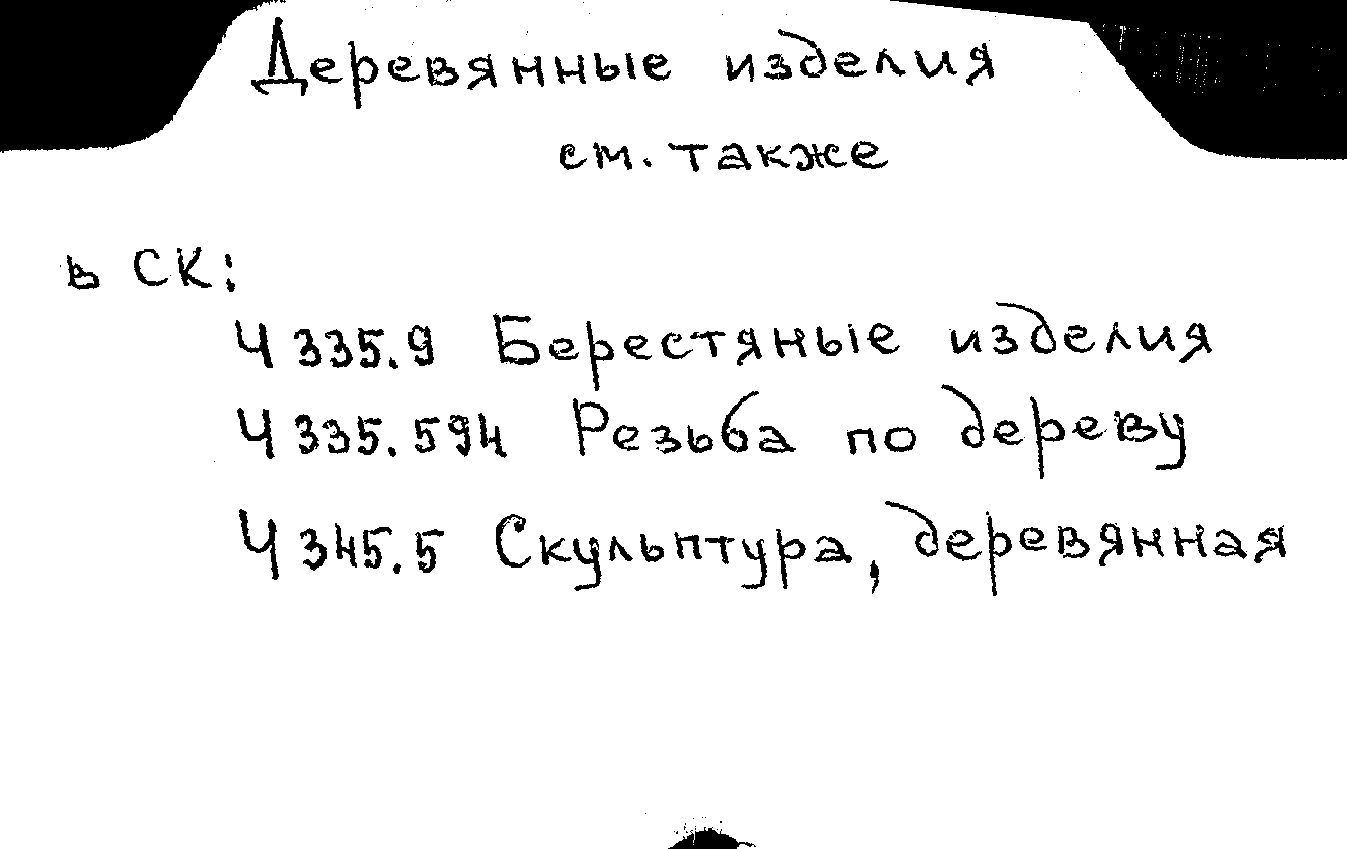 Деревянные изделия
см. также
в СК:
Ч 335.9 Берестяные изделия
Ч 335.594 Резьба по дереву
Ч 345.5 Скульптура, деревянная